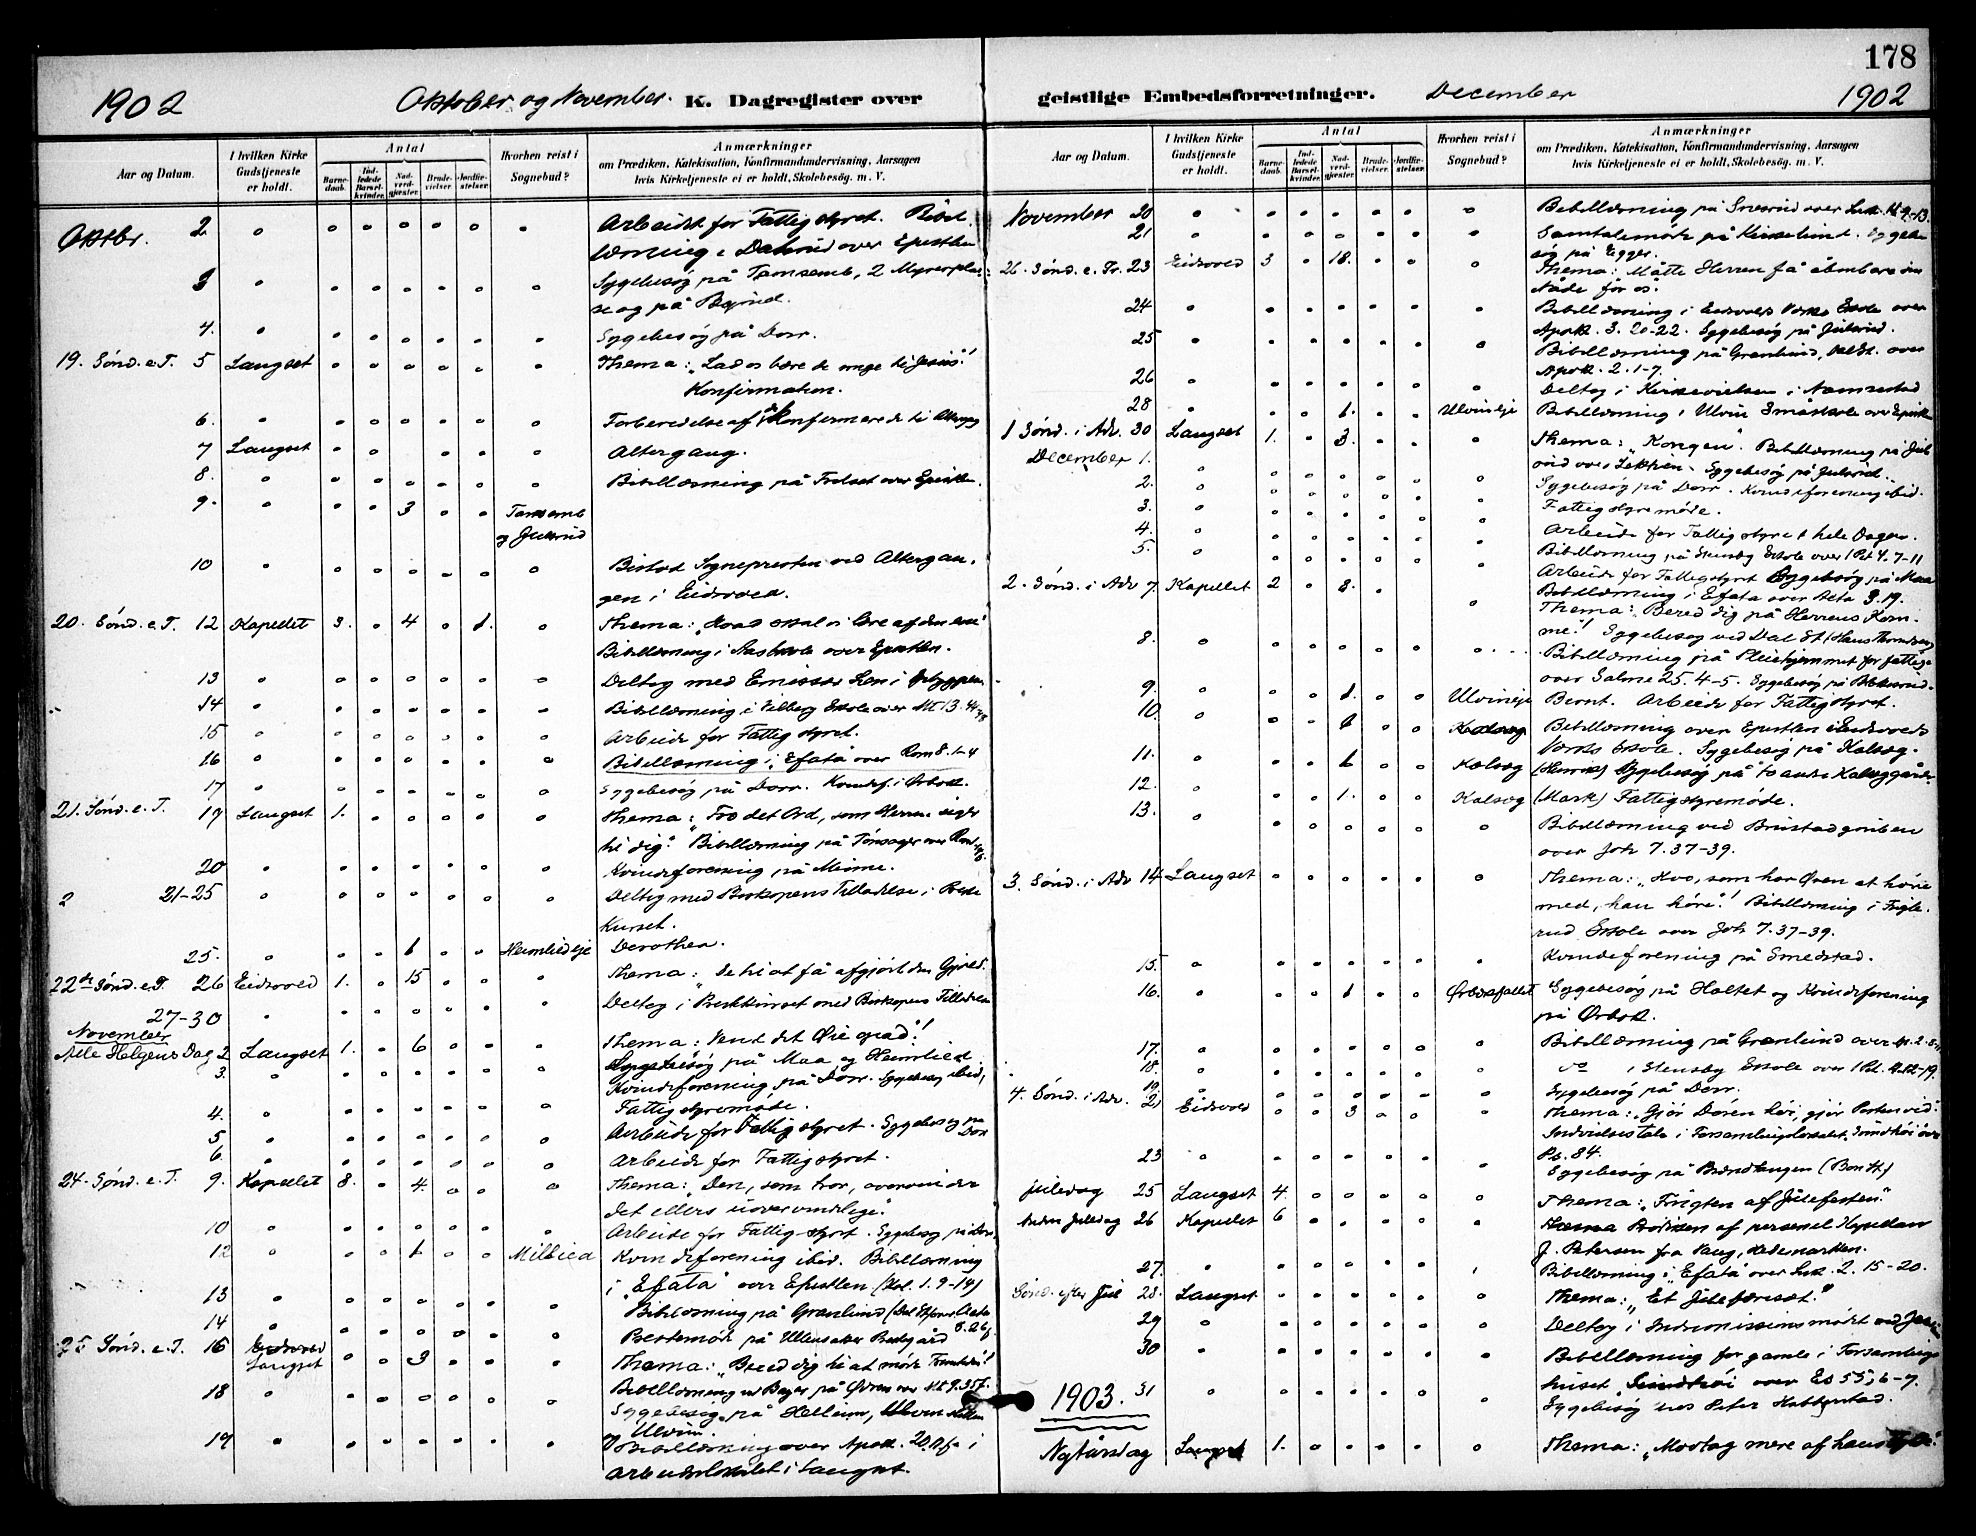 178
1902 Oktober og November. K. Dagregister over
geistlige Embedsforretninger. December 1902
Aar og Datum. I hvilken Kirke Gudstjeneste er holdt. Antal Barnedaab. Indledede Barselkvinder. Nadverdgjæster. Brudevielser. Jordfæstelser. Hvorhen reist i Sognebud? Anmærkninger om Prædiken, Katekisation, Konfirmandundervisning, Aarsagen hvis Kirketjeneste ei er holdt, Skolebesøg. m. V.
Oktbr. 2 Arbeidet for Fattigstyret. Bibel
læsning i over Epistlen
3 Sygebesøg på Tamsemb, 2
og på
4. Sygebesøg på Dorr.
19. Sønd. e. T. 5 Langset Thema: „Lad os bære de unge til Jesus!
Konfirmation.
6. Forberedelse af de Konfirmerede til Altergang
7 Langset Altergang.
8. Bibellæsning på over Epistlen.
9. 3 Tamsemb
og Julsrud
10 Bistod Sognepresten ved Altergan-
gen i Eidsvold.
20. Sønd. e. T. 12 Kapellet 3. 4 1. Thema: „Hvad skal vi lære af den
Bibellæsning i over Epistlen.
13 Deltog med Emissær i
14 Bibellæsning i Vilberg Skole over Mt 13. 44-48
15 Arbeide for Fattigstyret.
16 Bibellæsning i „Efata over Rom 8. 1-4
17 Sygebesøg på Dorr. Kvindef. i Ørbæk.
21. Sønd. e. T. 19 Langset 1. Thema: „Tro det Ord, som Herren siger
til dig." Bibellæsning på Tønsager over Rom
20 Kvindeforening på Minne.
21-25 Deltog med Biskopens Tilladelse i
Kurset.
25. 1 Heimlieeje Dorothea.
22de Sønd. e. T. 26 Eidsvold 1. 15 Thema: „Se til at få afgjort din Gjæld.
27-30 Deltog i med Biskopens Tilladelse
November
Alle Helgens Dag 2 Langset 1. 6 Thema: Vent det Øie opad!
3. Sygebesøg på Maa og Heimlied.
Kvindeforening på Dorr. Sygebesøg ibid,
4. Fattigstyremøde.
5 Arbeide for Fattigstyret. Sygebesøg på Dorr
6. Arbeide for Fattigstyret.
24. Sønd. e. T. 9. Kapellet 8. 4. Thema: „Den, som tror, overvinder
det ellers uovervindelige."
10 Arbeide for Fattigstyret. Sygebesøg på Dorr
12 1 Millied Kvindeforening ibid. Bibellæsning
i „Efata" over Epistlen (Kol. 1. 9-14)
13 Bibellæsning på Grønlund
14 Prestemøde på Ullensaker Prestegård
25 Sønd. e. T. 16 Langset 3 Thema: „Bered dig til at møde
18 Bibellæsning på Ødven over Mt 9. 35f.
Sygebesøg på Helleim, Ulvin
og Ulvin.
19 Bibellæsning over Apok. 20 i
Arbeiderlokalet i Langset.
Aar og Datum. I hvilken Kirke Gudstjeneste er holdt. Antal Barnedaab. Indledede Barselkvinder. Nadverdgjæster. Brudevielser. Jordfæstelser. Hvorhen reist i Sognebud? Anmærkninger om Prædiken, Katekisation, Konfirmandundervisning, Aarsagen hvis Kirketjeneste ei er holdt, Skolebesøg. m. V.
November 20 Bibellæsning på over Luk.
21 Samtalemøde på Kirkelund. Sygebe
søg på Egger.
26. Sønd. e. Tr. 23 Eidsvold 3 18. Thema: Måtte Herren få åbenbare sin
Nåde for os.
24 Bibellæsning i Eidsvolds Værks Skole over
Apok. 3. 20-22. Sygebesøg på Julsrud.
25 Bibellæsning på Grønlund, over
Apok. 2. 1-7.
26 Deltog i Kirkevielsen i Namnestad
28 1. Ulvineje Bibellæsning i Ulvin Småskole over Epistlen
1 Sønd. i Adv. 30 Langset 1. 3. Thema: „Kongen". Bibellæsning på Juls
December 1. rud over Lektien. Sygebesøg på Julsrud.
2. Sygebesøg på Dorr. Kvindeforening ibid.
3. Fattigstyremøde.
4. Arbeide for Fattigstyret hele Dagen.
5. Bibellæsning på Stensby Skole over 1 Pet 4. 7-11
Arbeide for Fattigstyret Sygebesøg på Maa
2. Sønd. i Adv 7. Kapellet 2 8. Bibellæsning i Efata over Acta 3. 19.
Thema: „Bered dig på Herrens Kom-
me"! Sygebesøg ved Dal St.
8. Bibellæsning på Pleiehjemmet for fattige
over Salme 25. 4-5. Sygebesøg på
9. 1. Ulvineje Bernt. Arbeide for Fattigstyret.
10. 1 Kalsæg Bibellæsning over Epistlen i Eidsvolds
Værks Skole. Sygebesøg på Kalsæg.
11. 1 Kalsæg Sygebesøg på to andre Kalsæggårde
12. 1. Kalsæg (Mark) Fattigstyremøde.
13. Bibellæsning ved Brustadgruben
over Joh 7. 37-39.
3. Sønd. i Adv 14 Langset Thema: „Hvo, som har Øren at høre
med, han høre"! Bibellæsning i
rud Skole over Joh 7. 37-39.
15. Kvindeforening på Smedstad.
16. 1 Ørbækfallet Sygebesøg på Holtet og Kvindeforening
på Ørbæk.
17. Bibellæsning på Grønlund over
18. do i Stensby Skole over 1 Pet. 4. 12-19.
19. Sygebesøg på Dorr.
4. Sønd. i Adv. 21 Eidsvold 3 Thema: „Gjør Døren høi, gjør Porten vid".
Indvielsestale i Forsamlingslokalet, Sundhøi over
Ps. 84.
23 Sygebesøg på Brændengen
Juledag 25 Langset 4. Thema: „Frygten af Julefesten."
Anden Juledag 26 Kapellet 6 af personel Kapellan
J. Petersen fra Vang, Hedemarken.
27. Bibellæsning i „Efata" over Luk. 2. 15-20.
Sønd. efter Jul 28. Langset Thema: „Et Juleforsæt."
29 Deltog i Indremissionsmødet ved
30 Bibellæsning for gamle i Forsamlings
huset „Sundhøi over Es 55, 6-7.
1903. 31 Sygebesøg hos Peter Habberstad.
Nytårsdag Langset 1. Thema: „Modtag mere af hans